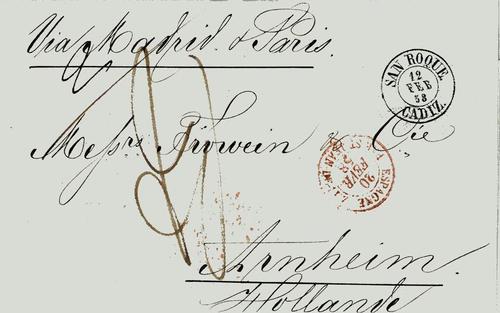 Via Madrid & Paris.
SAN ROQUE
12
FEB
58
CADIZ.
Messrs Frowein & Cie
ESPAGNE
20
FEVR
58
Arnheim.
Hollande